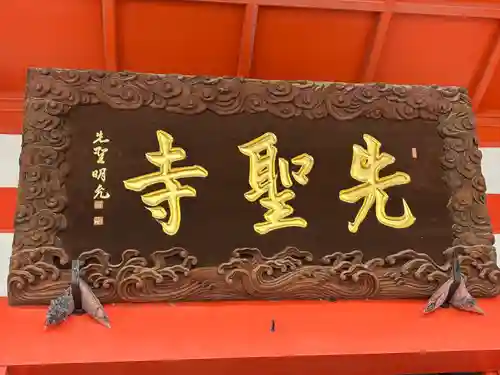 先聖寺
先聖明允